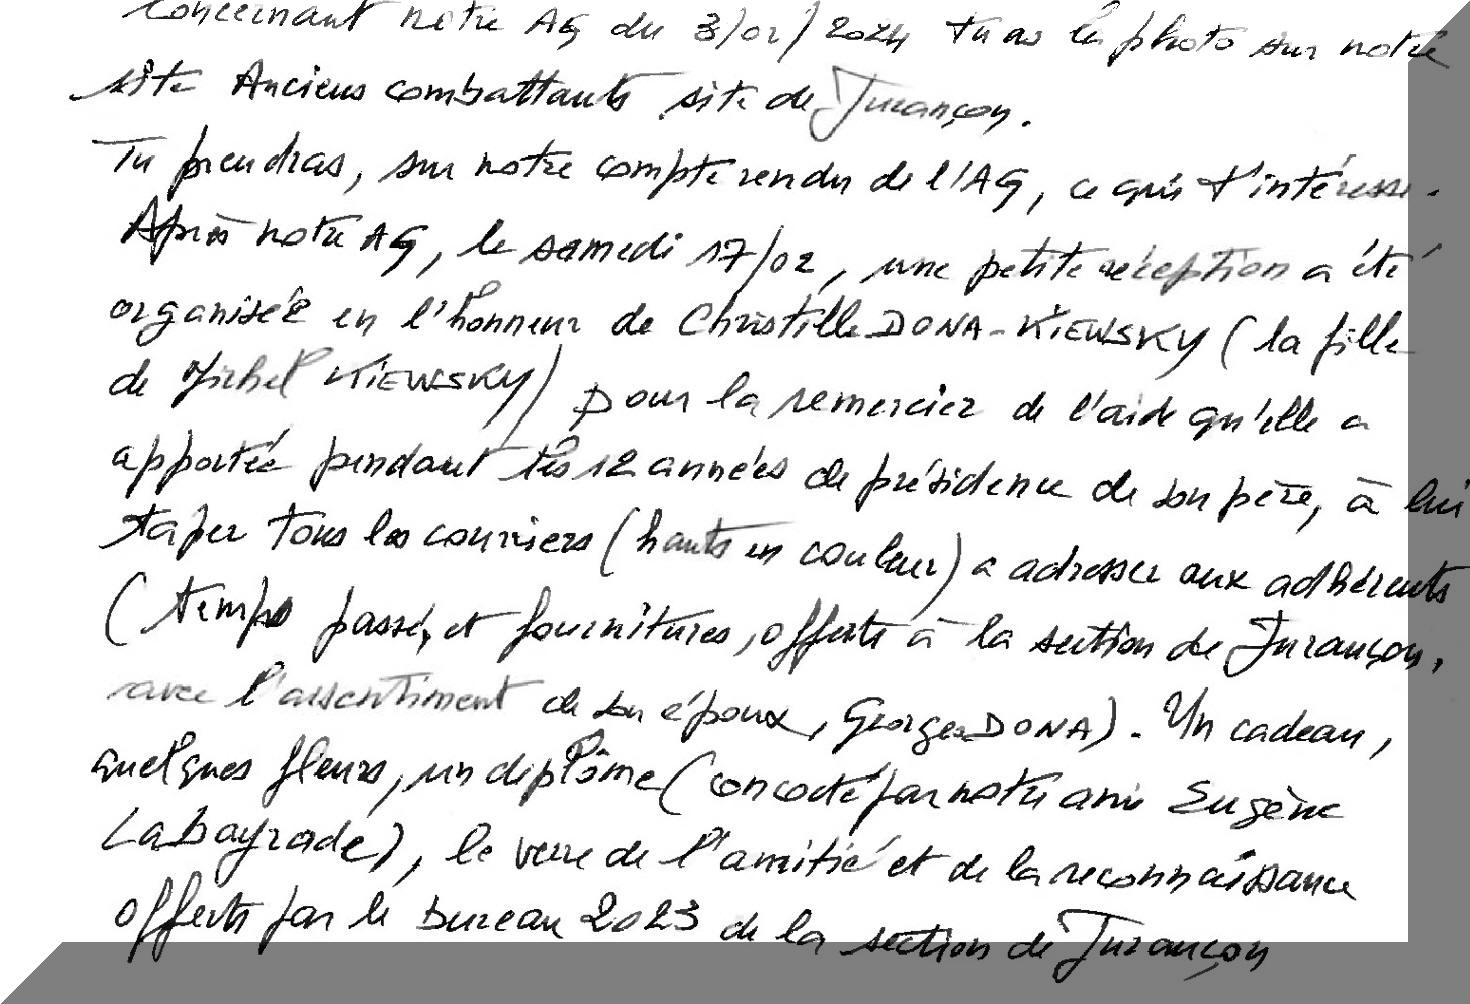 concernant notre AG du 3/02/2024 tu as la photo sur notre
site Anciens combattants site de Jurançon.
Tu prendras, sur notre compte rendu de l'AG, ce qui t'intéresse.
Après notre AG, le samedi 17/02, une petite réception a été
organisée en l'honneur de Christille DONA-KIEWSKY (la fille
de Michel KIEWSKY) pour la remercier de l'aide qu'elle a
apportée pendant les 12 années de présidence de son père, à lui
taper tous les courriers (hauts en couleur) a adresser aux adhérents
(temps passé, et fournitures, offerts à la section de Jurançon,
avec l'assentiment de son époux, Georges DONA). Un cadeau,
quelques fleurs, un diplôme (concocté par notre ami Eugène
Labayrade), le verre de l'amitié et de la reconnaissance
offerts par le bureau 2023 de la section de Jurançon